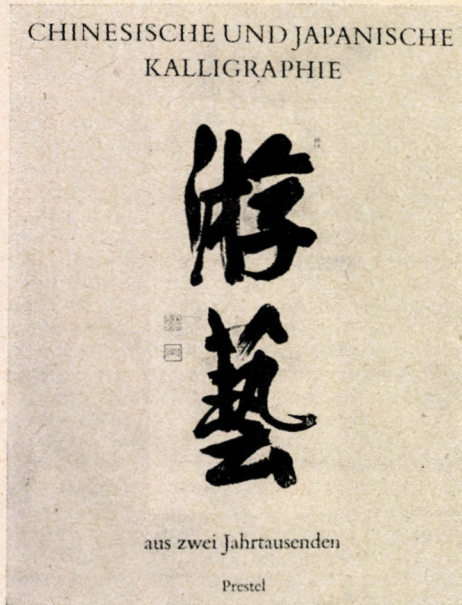 CHINESISCHE UND JAPANISCHE
KALLIGRAPHIE
游
藝
aus zwei Jahrtausenden
Prestel